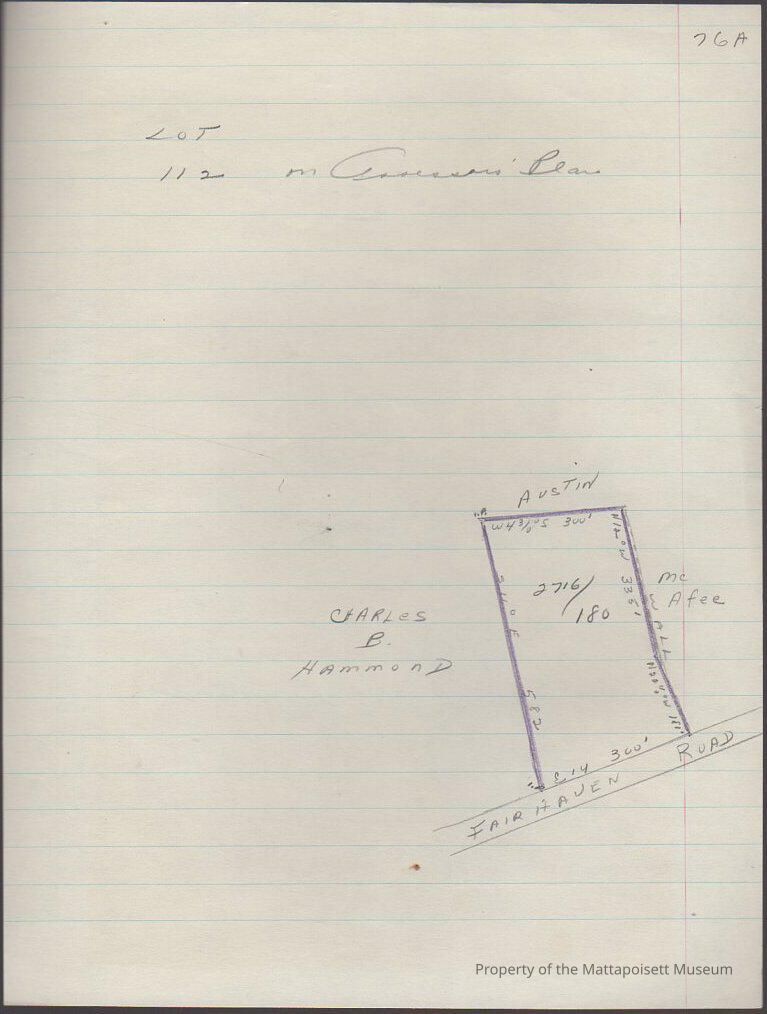 76A
LOT
112 on Assessors' Plan
AUSTIN
300'
2716/180
335'
Mc
Afee
WALL
CHARLES
B.
HAMMOND
582
181'
300'
ROAD
FAIR HAVEN
Property of the Mattapoisett Museum